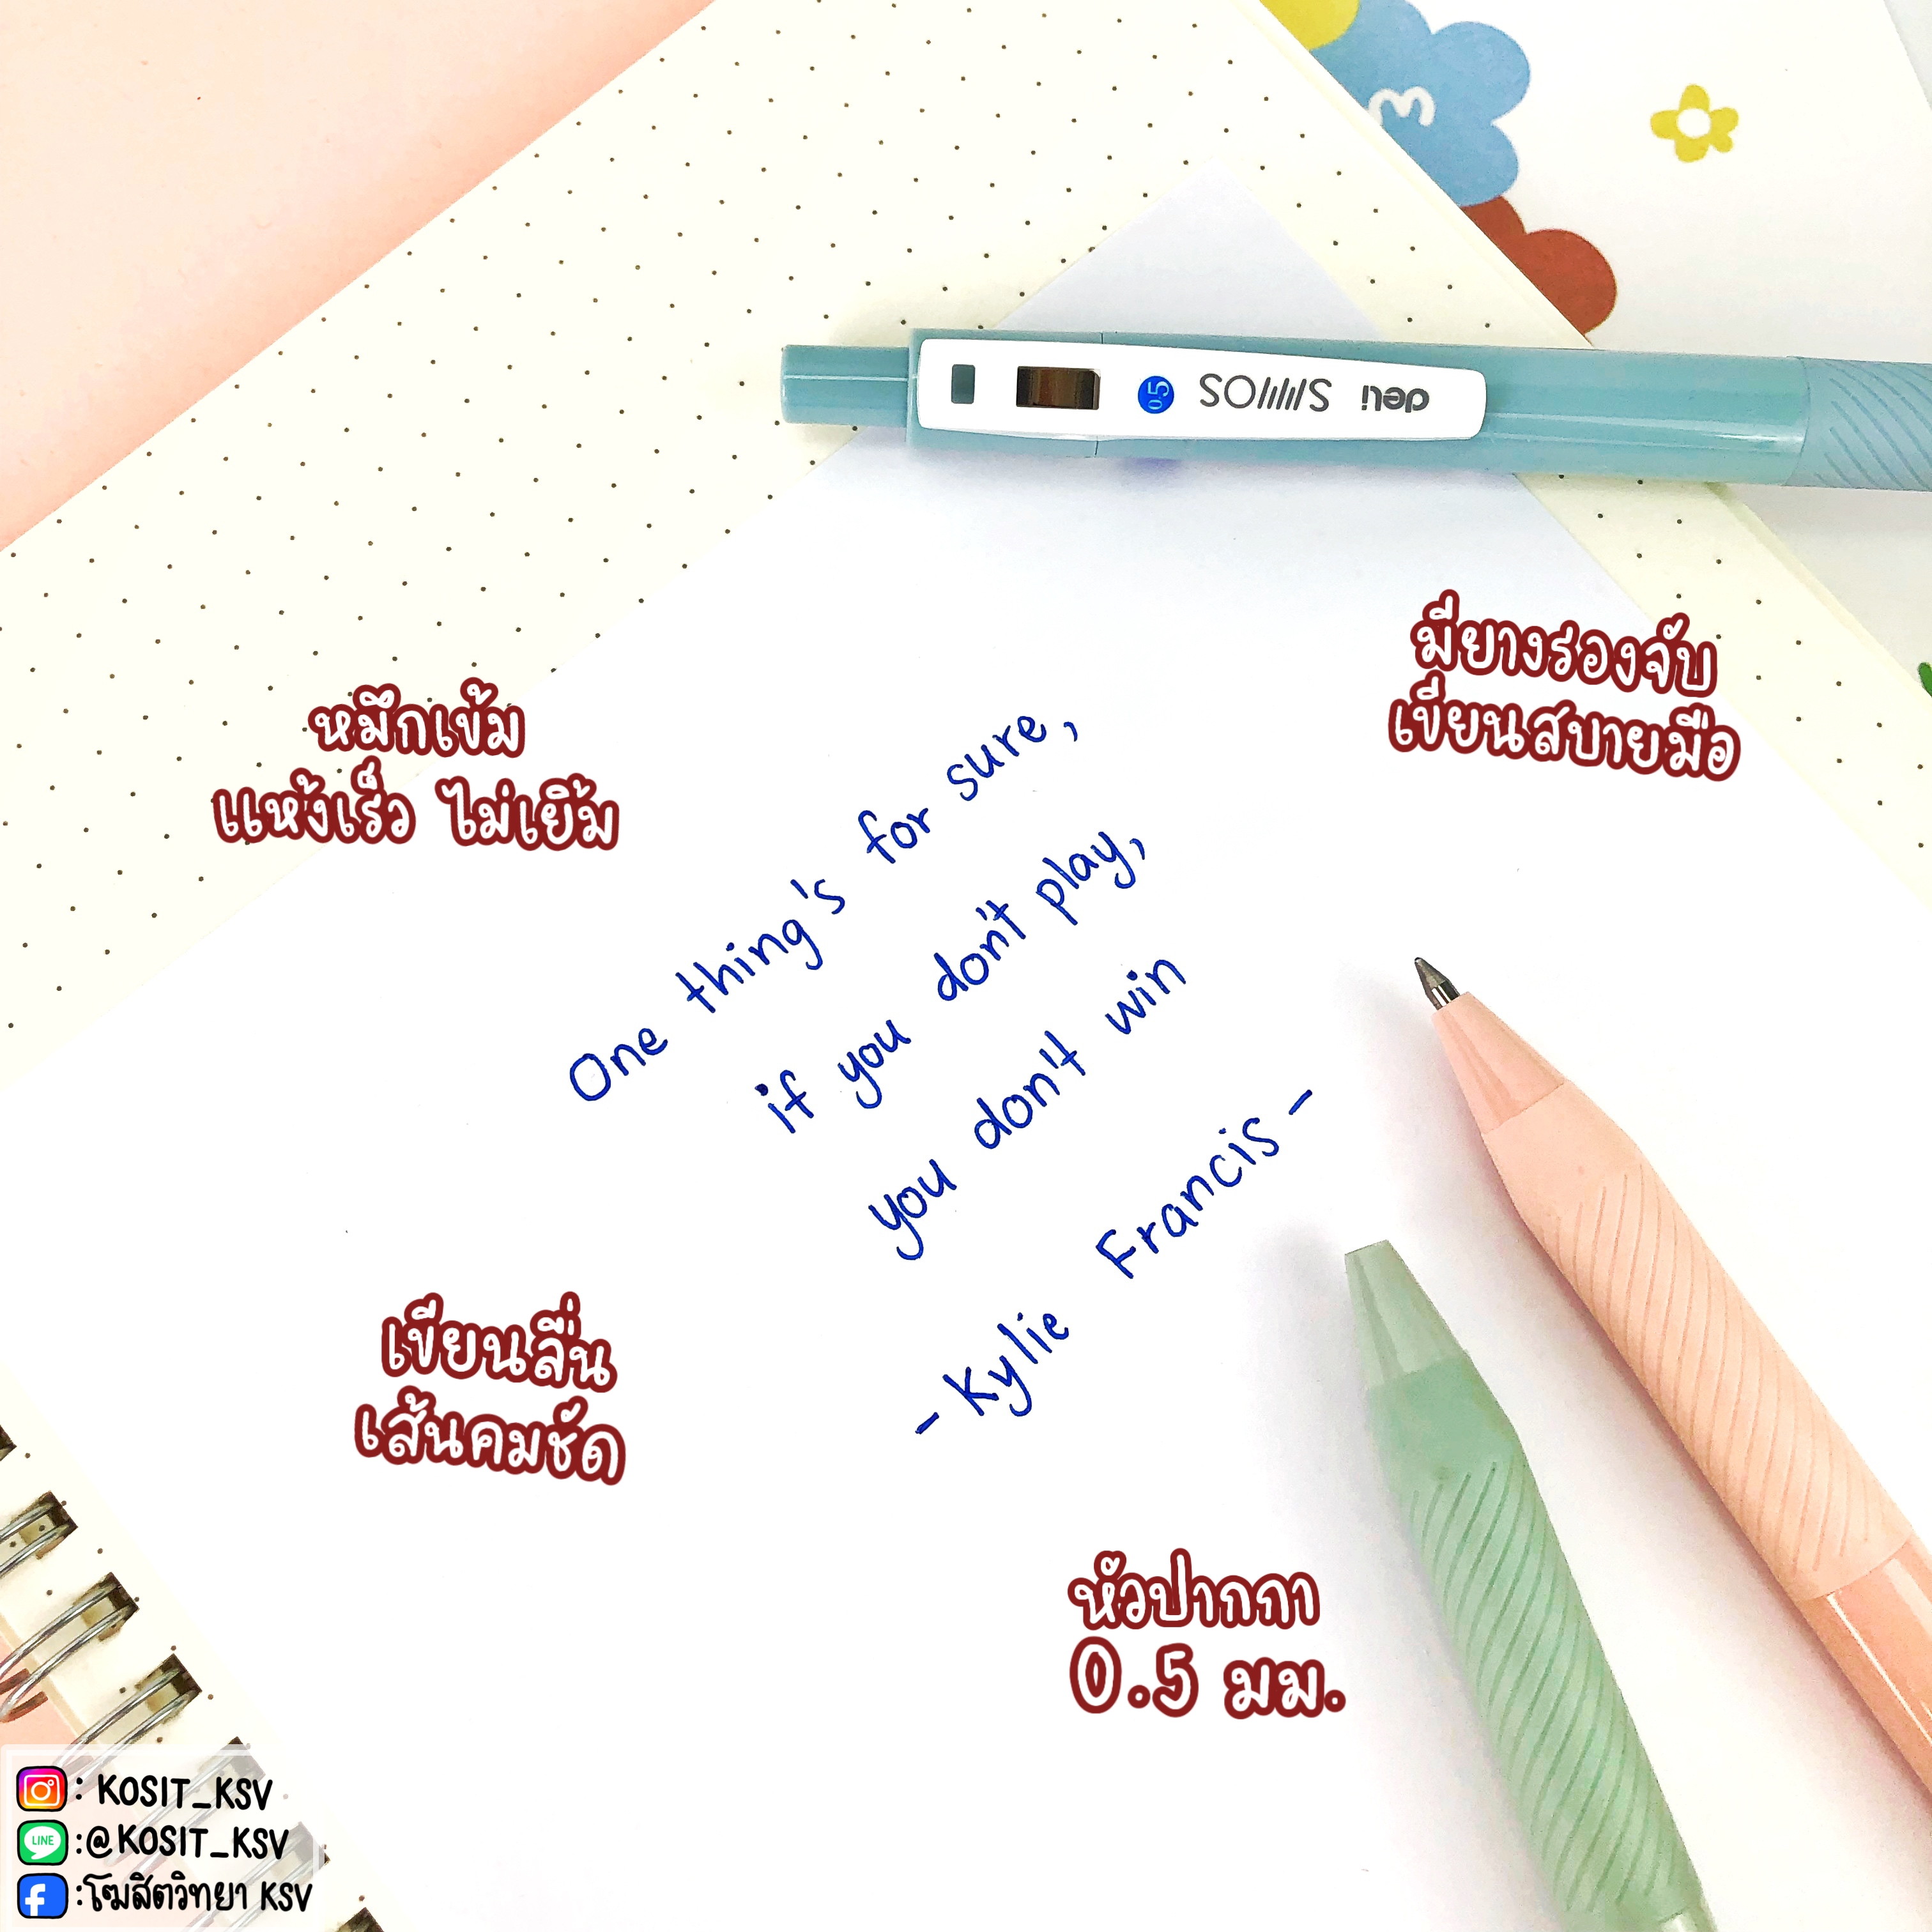 0.5 SMOOS deli
มียางรองจับ
เขียนสบายมือ
หมึกเข้ม
แห้งเร็ว ไม่เยิ้ม
One thing's for sure,
if you don't play,
you don't win
- Kylie Francis -
เขียนลื่น
เส้นคมชัด
หัวปากกา
0.5 มม.
: KOSIT_KSV
LINE :@KOSIT_KSV
:โฆสิตวิทยา KSV